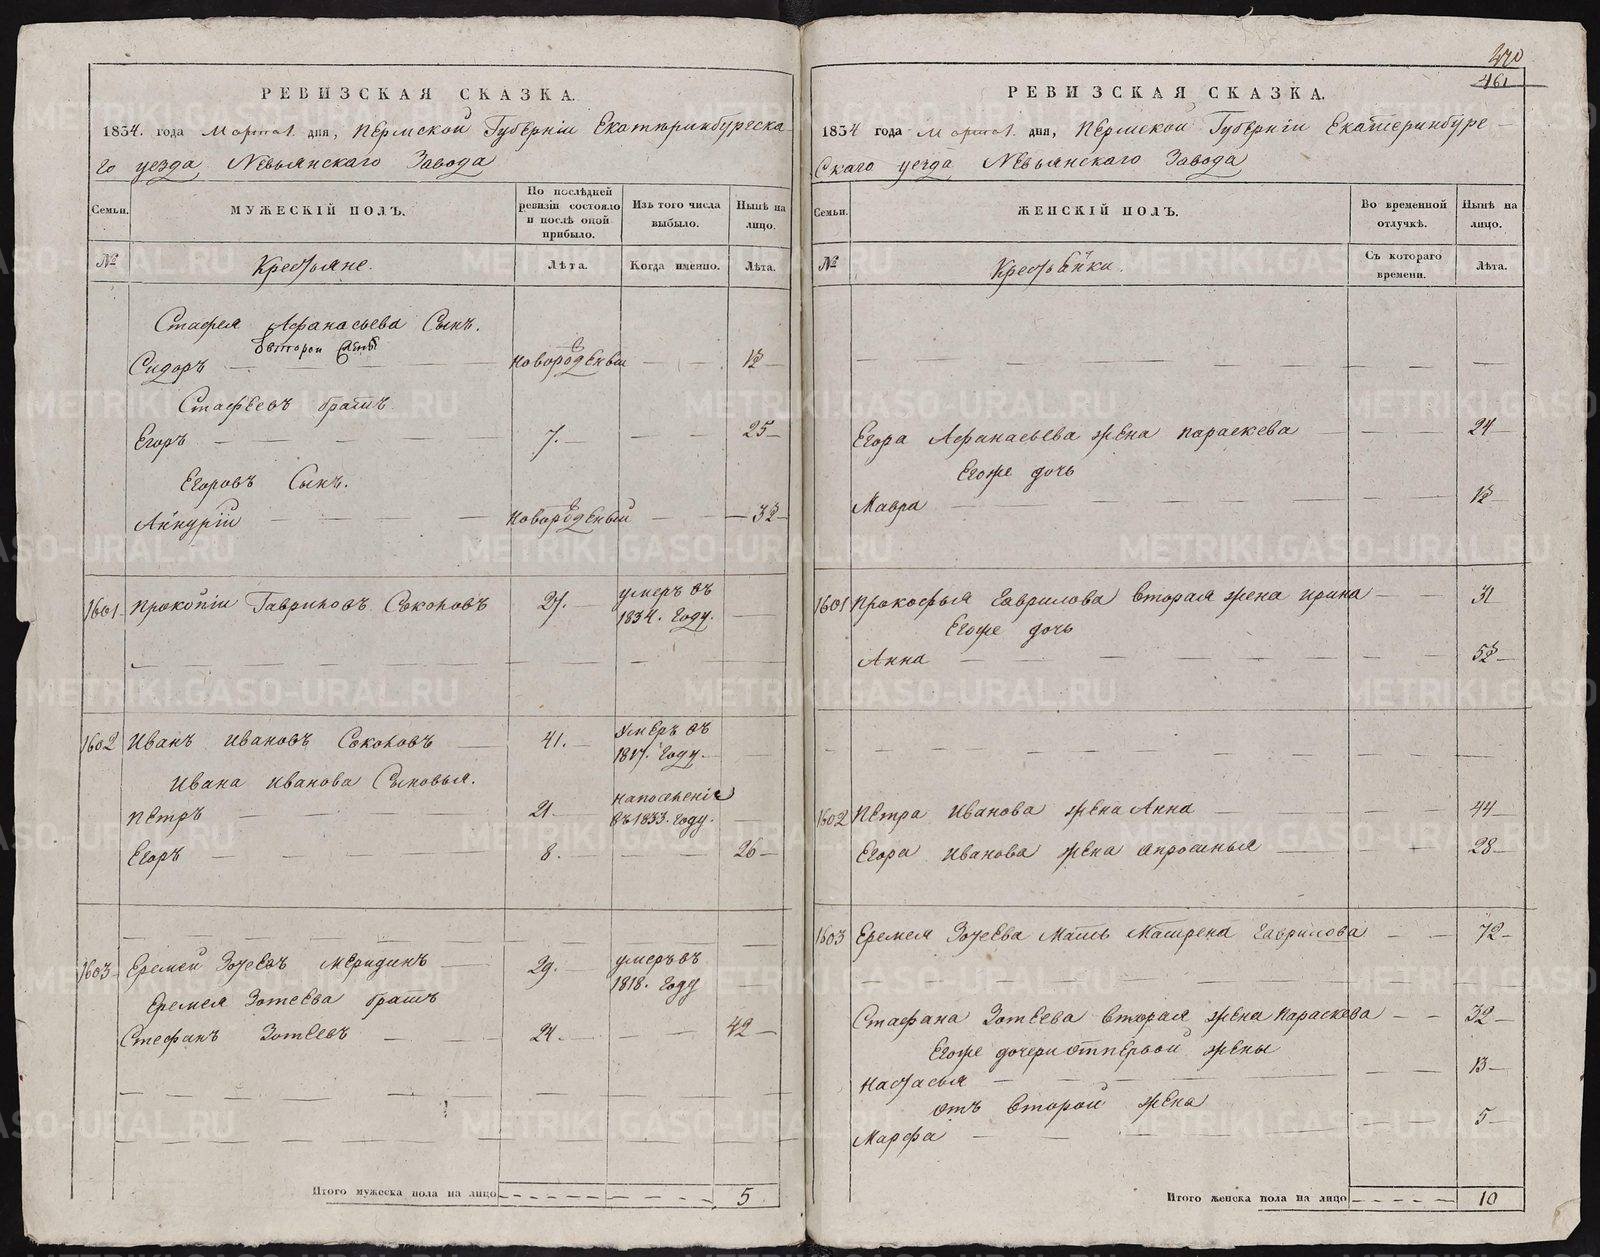 РЕВИЗСКАЯ СКАЗКА.
1834. года Марта 1. дня, Пермской Губерніи Екатеринбургска-
го уезда, Невьянскаго Завода
Семьи.
МУЖЕСКІЙ ПОЛЪ.
По послѣдней ревизіи состояло и послѣ оной прибыло.
Изъ того числа выбыло.
Нынѣ на лицо.
№
Крестьяне.
Лѣта.
Когда именно.
Лѣта.
Стафея Афанасьева Сынъ.
Сидоръ — новорожденный — —
Стафеевъ братъ
Егоръ — — — 7. — — 25 —
Егоровъ Сынъ.
— — новорожденный — —
1601 Прокопіи Гавриловъ Соколовъ 27. умеръ въ
1834. году.
1602 Иванъ Ивановъ Соколовъ — 41. — Умеръ въ
1817. году.
Ивана Иванова Сыновья.
Петръ — — 21. — напоселеніе
въ 1833. году.
Егоръ — — 8. — — 26 —
1603 Еремей Зотеевъ — 29. умеръ въ
1818. году
Еремея Зотеева братъ
Стефанъ Зотеевъ — — 24. — — 42 —
Итого мужеска пола на лицо 5
470
461
РЕВИЗСКАЯ СКАЗКА.
1834 года Марта 1. дня, Пермской Губерніи Екатеринбург-
скаго уезда, Невьянскаго Завода
Семьи.
ЖЕНСКІЙ ПОЛЪ.
Во временной отлучкѣ.
Нынѣ на лицо.
№
Крестьянки.
Съ котораго времени.
Лѣта.
Егора Афанасьева жена Параскева — — 24 —
Егоже дочь
Мавра — —
1601 Прокофья Гаврилова вторая жена Ирина — — 31
Егоже дочь
Анна — —
1602 Петра Иванова жена Анна — — 44 —
Егора Иванова жена — — 28 —
1603 Еремея Зотеева мать Матрена Гаврилова — — 72 —
Стафана Зотеева вторая жена Параскева — — 32 —
Егоже дочери отпервой жены
Настасья — — 13 —
отъ второй жены
Марфа — — 5 —
Итого женска пола на лицо 10
METRIKI.GASO-URAL.RU